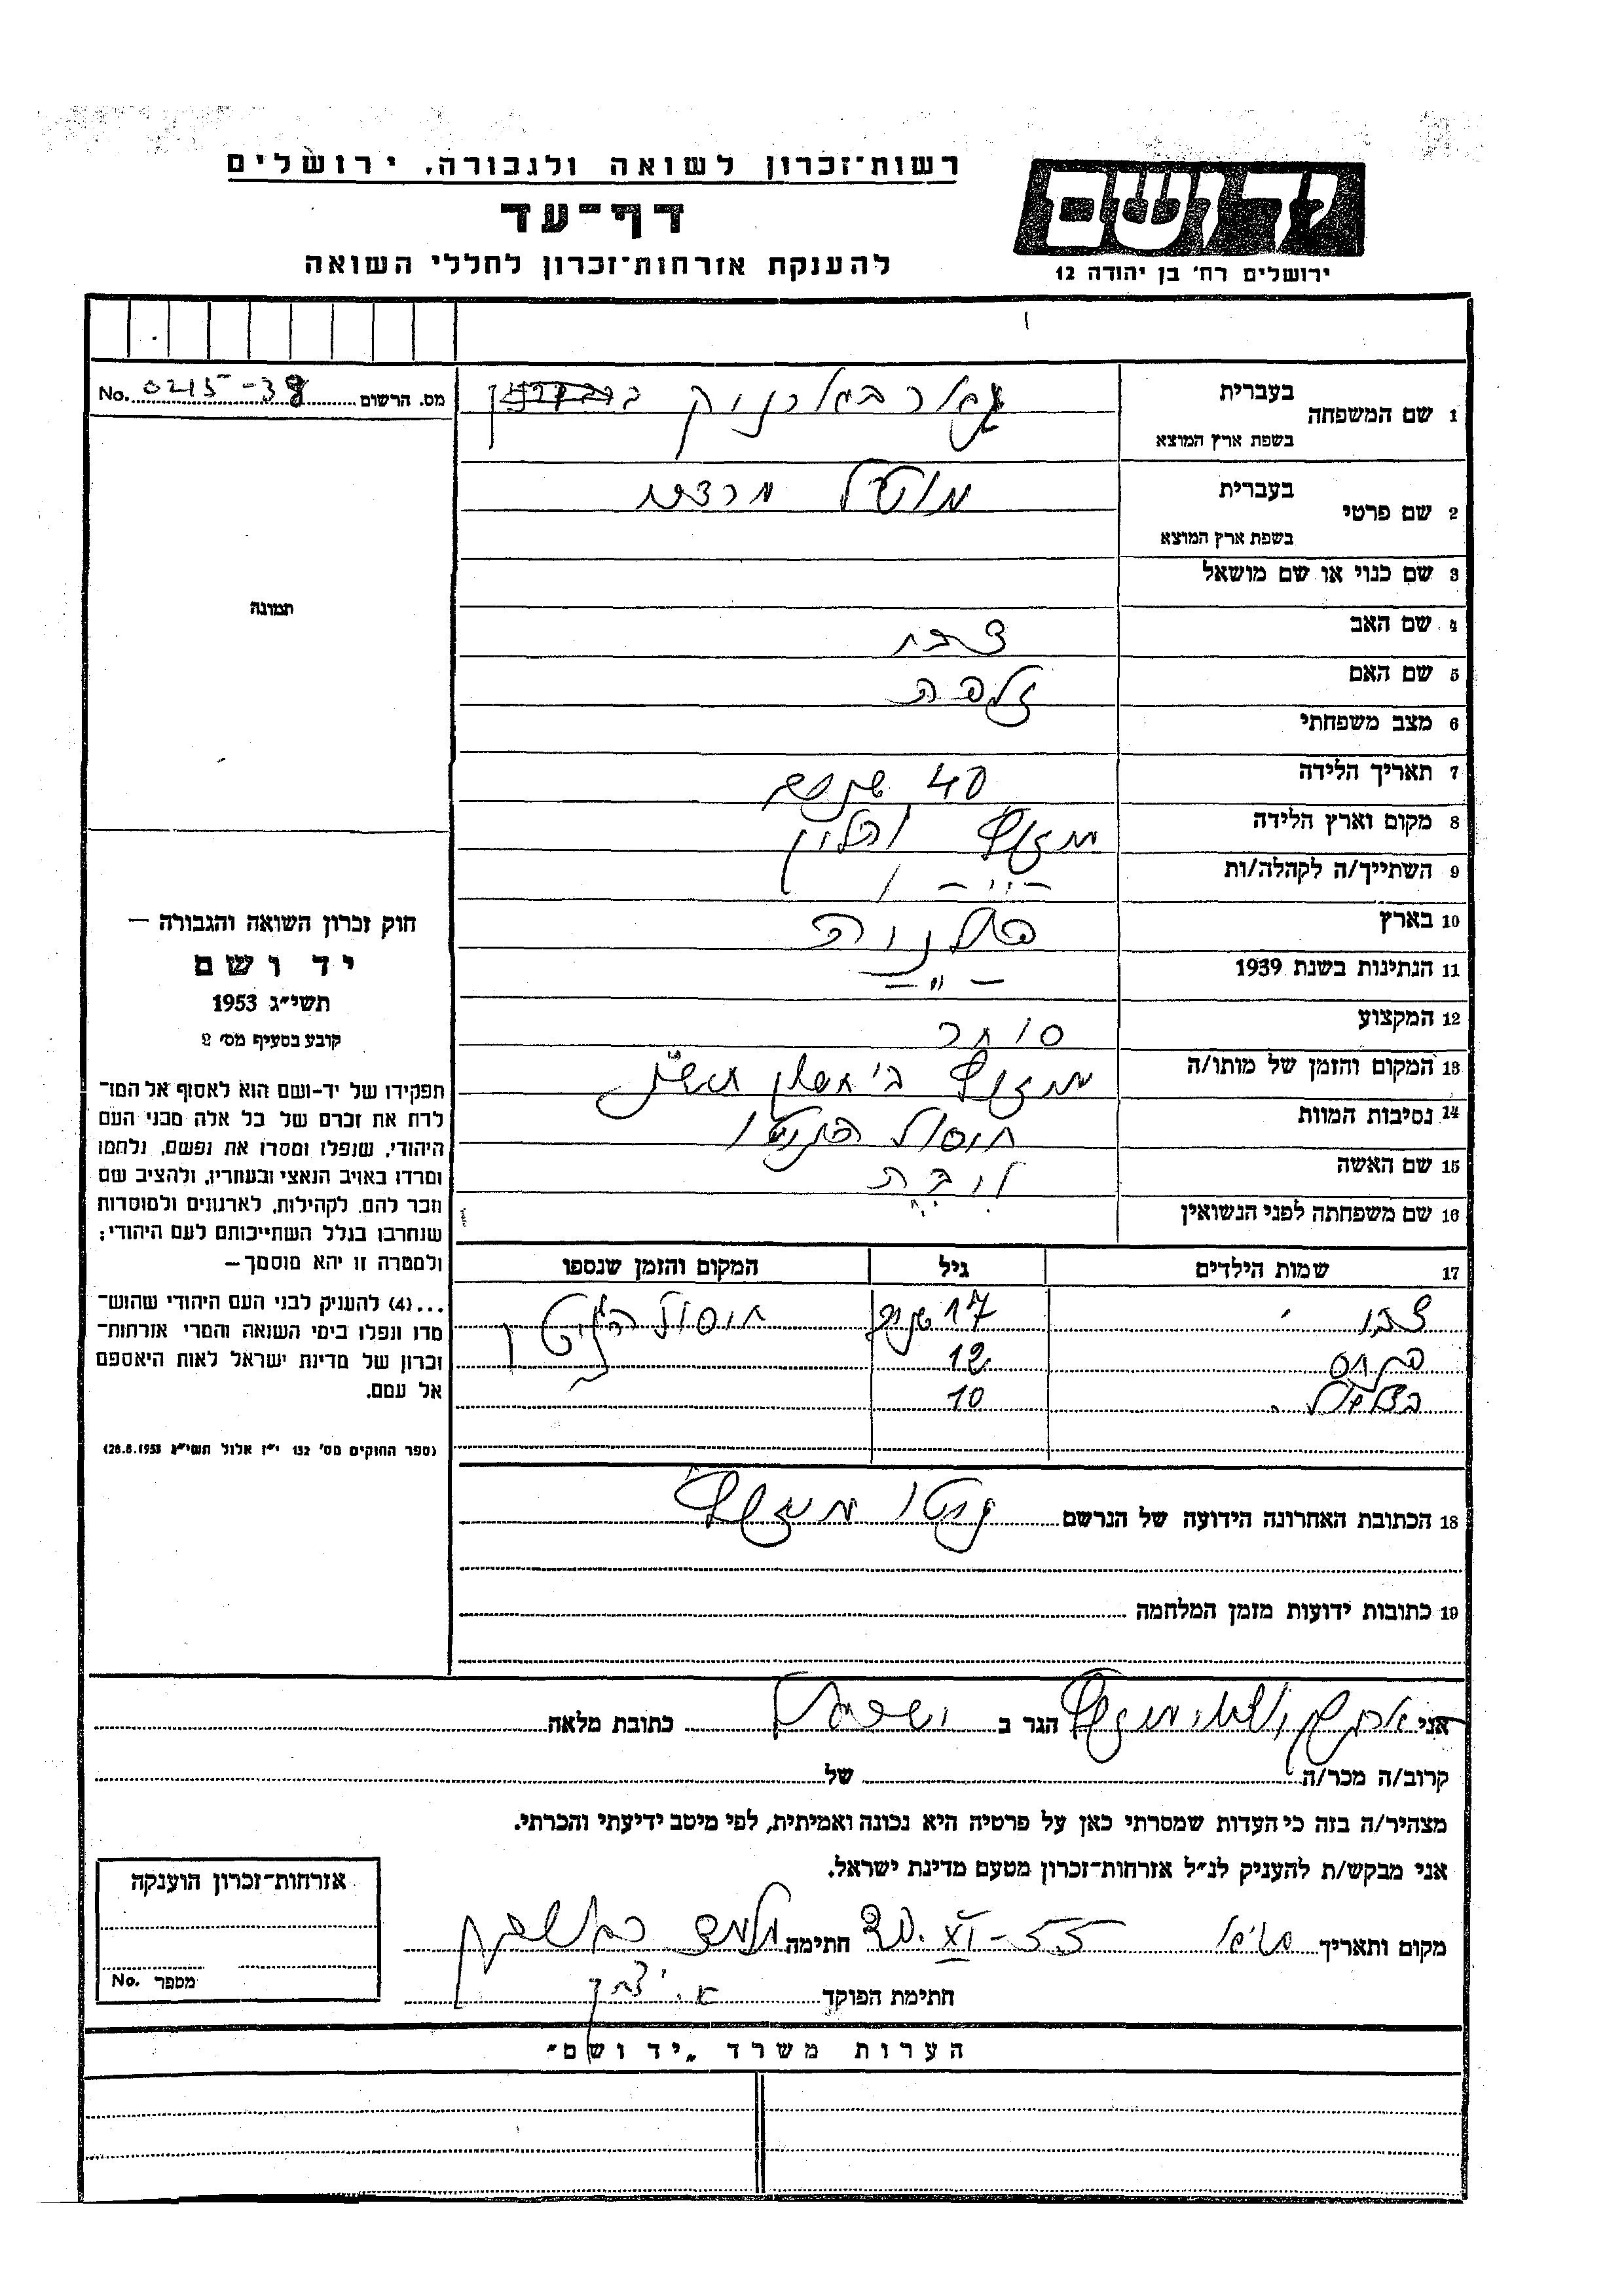 רשות־זכרון לשואה ולגבורה, ירושלים
דף־עד
להענקת אזרחות־זכרון לחללי השואה
יד ושם
ירושלים רח' בן יהודה 12
מס. הרשום 0215-38 No.
1 שם המשפחה
בעברית
בשפת ארץ המוצא
2 שם פרטי
בעברית מוטל מרדכי
בשפת ארץ המוצא
3 שם כנוי או שם מושאל
4 שם האב
5 שם האם זלפה
6 מצב משפחתי
7 תאריך הלידה 40 שנים
8 מקום וארץ הלידה
9 השתייך/ה לקהלה/ות — " —
10 בארץ פולניה
11 הנתינות בשנת 1939 — " —
12 המקצוע סוחר
13 המקום והזמן של מותו/ה
14 נסיבות המוות חיסול הגיטו
15 שם האשה ליבה
16 שם משפחתה לפני הנשואין
17 שמות הילדים גיל המקום והזמן שנספו
17 שנים חיסול הגיטו
פנחס 12
בצלאל 10
18 הכתובת האחרונה הידועה של הנרשם גיטו
19 כתובות ידועות מזמן המלחמה
תמונה
חוק זכרון השואה והגבורה —
יד ושם
תשי״ג 1953
קובע בסעיף מס׳ 2
תפקידו של יד־ושם הוא לאסוף אל המו־
לדת את זכרם של כל אלה מבני העם
היהודי, שנפלו ומסרו את נפשם, נלחמו
ומרדו באויב הנאצי ובעוזריו, ולהציב שם
וזכר להם, לקהילות, לארגונים ולמוסדות
שנחרבו בגלל השתייכותם לעם היהודי;
ולמטרה זו יהא מוסמך —
...(4) להעניק לבני העם היהודי שהוש־
מדו ונפלו בימי השואה והמרי אזרחות־
זכרון של מדינת ישראל לאות היאספם
אל עמם.
(ספר החוקים מס׳ 132 י״ז אלול תשי״ג 28.8.1953)
אני הגר ב ישראל כתובת מלאה
קרוב/ה מכר/ה של
מצהיר/ה בזה כי העדות שמסרתי כאן על פרטיה היא נכונה ואמיתית, לפי מיטב ידיעתי והכרתי.
אני מבקש/ת להעניק לנ״ל אזרחות־זכרון מטעם מדינת ישראל.
מקום ותאריך 20.XI-55 חתימה
חתימת הפוקד
אזרחות־זכרון הוענקה
מספר No.
הערות משרד „יד ושם״